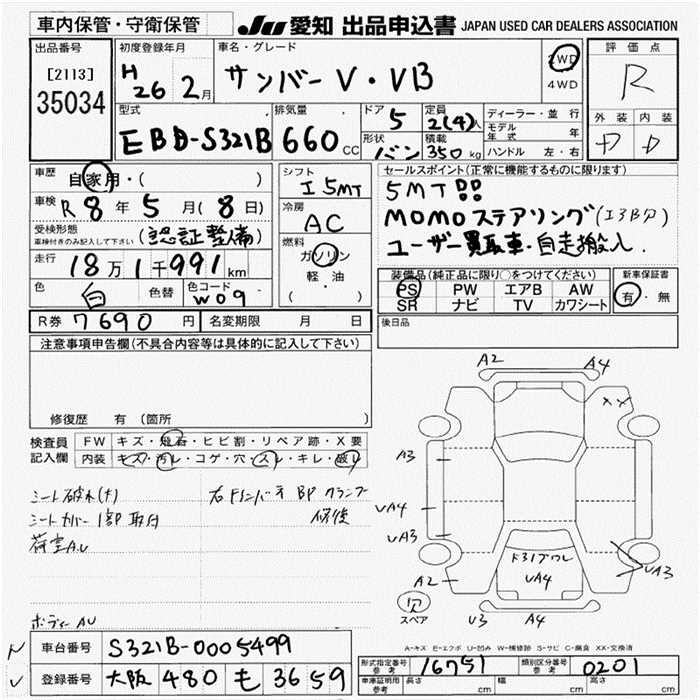 車内保管・守衛保管
JU 愛知 出品申込書 JAPAN USED CAR DEALERS ASSOCIATION
出品番号
[2113]
35034
初度登録年月
H26 2月
車名・グレード
サンバーV・VB
2WD
4WD
評価点
R
外装 内装
D D
型式
EBD-S321B
排気量
660cc
ドア
5
定員
2(4)人
形状
バン
積載
350kg
ディーラー・並行
モデル年式 年
ハンドル 左・右
車歴
自家用・( )
車検
R8年5月(8日)
受検形態
車検付きのみ記入して下さい
(認証整備)
走行
18万1千991km
色
白
色替
色コード
W09
シフト
I 5MT
冷房
AC
燃料
ガソリン
軽・油
( ・ )
セールスポイント(正常に機能するものに限ります)
5MT!!
MOMOステアリング(I3B分)
ユーザー買取車・自走搬入.
装備品(純正品に限り○をつけてください)
PS PW エアB AW
SR ナビ TV カワシート
新車保証書
有・無
R券 7690円
名変期限 月 日
後日品
注意事項申告欄(不具合内容等は具体的に記入して下さい)
修復歴 有(箇所 )
検査員記入欄
FW キズ・飛石・ヒビ割・リペア跡・X要
内装 キズ・汚レ・コゲ・穴・スレ・キレ・破レ
シート破れ(ナ)
シートカバー 1部取付
荷室A.U
ボディーAU
BP クランプ
修復
A2
A4
XX
A3
UA4
UA3
A2
UA4
UA3
欠
スペア
U3
A4
A-キズ E-エクボ U-凹み W-補修跡 S-サビ C-腐食 XX-交換済
車台番号 S321B-0005499
登録番号 大阪 480 も 3659
形式指定番号
参考
16751
類別区分番号
参考
0201
車庫証明用
参考
長さ cm 幅 cm 高さ cm